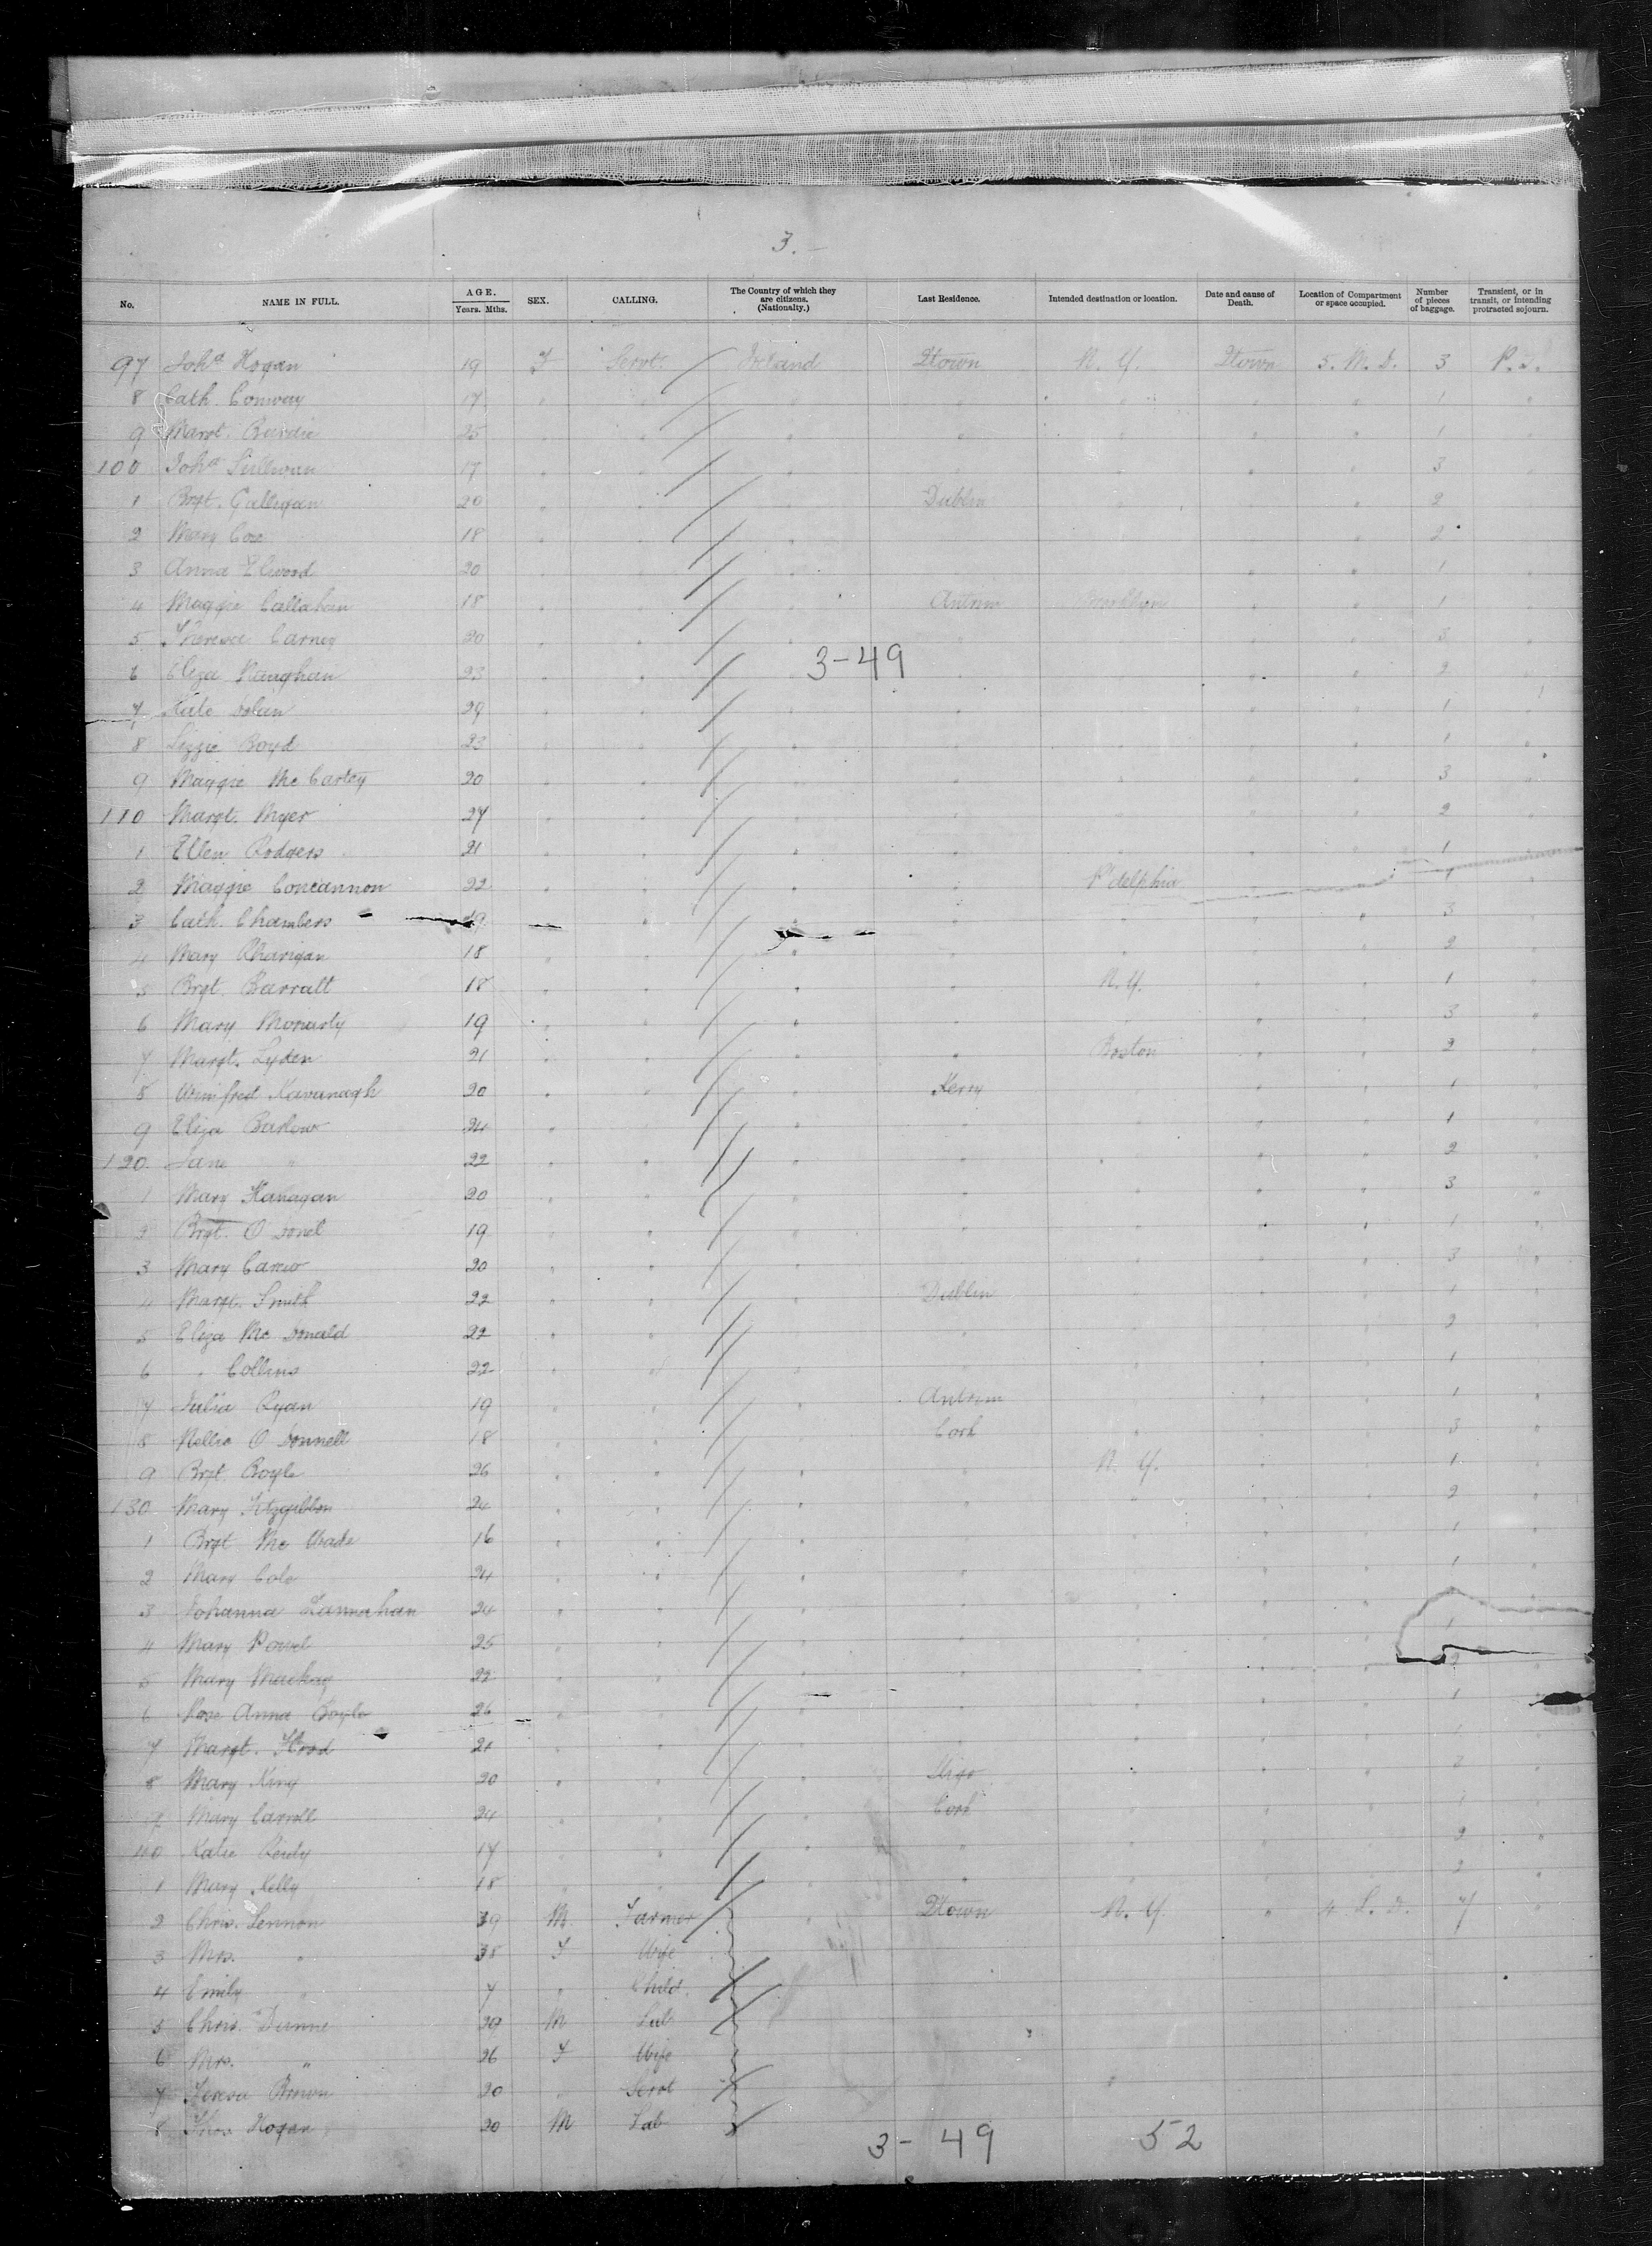 3.
No. NAME IN FULL. AGE. Years. Mths. SEX. CALLING. The Country of which they are citizens. (Nationalty.) Last Residence. Intended destination or location. Date and cause of Death. Location of Compartment or space occupied. Number of pieces of baggage. Transient, or in transit, or intending protracted sojourn.
97 Joha Hogan 19 F Servt. Ireland Qtown N. Y. Qtown 5. M. D. 3 P. S.
8 Cath. Conway 17 " " " " " " " 1 "
9 Margt. 25 " " " " " " " 1 "
100 Joha Sullivan 17 " " " " " " " 3 "
1 Brgt. Galligan 20 " " " Dublin " " " 2 "
2 Mary Cox 18 " " " " " " " 2 "
3 Anna Elwood 20 " " " " " " " 1 "
4 Maggie Callahan 18 " " " Antrim Brooklyn " " 1 "
5 Theresa Carney 20 " " " " " " " 3 "
3-49
6 Eliza Naughan 23 " " " " " " " 2 "
7 Kate Dolan 29 " " " " " " " 1 "
8 Lizzie Boyd 23 " " " " " " " 1 "
9 Maggie Mc Cartey 20 " " " " " " " 3 "
110 Margt. Myer 27 " " " " " " " 2 "
1 Ellen Rodgers 21 " " " " " " " 1 "
2 Maggie Concannon 22 " " " " P'delphia " " 1 "
3 Cath. Chambers 19 " " " " " " " 3 "
4 Mary 18 " " " " " " " 2 "
5 Brgt. Barratt 18 " " " " N. Y. " " 1 "
6 Mary Moriarty 19 " " " " " " " 3 "
7 Margt. Lyden 21 " " " " Boston " " 2 "
8 Winifred Kavanagh 20 " " " Kerry " " " 1 "
9 Eliza Barlow 24 " " " " " " " 1 "
120 Jane " 22 " " " " " " " 2 "
1 Mary Flanagan 20 " " " " " " " 3 "
2 Brgt. O Donel 19 " " " " " " " 1 "
3 Mary Carew 20 " " " " " " " 3 "
4 Margt. Smith 22 " " " Dublin " " " 1 "
5 Eliza Mc Donald 22 " " " " " " " 2 "
6 " Collins 22 " " " " " " " 1 "
7 Julia Ryan 19 " " " Antrim " " " 1 "
8 Nellie O Donnell 18 " " " Cork " " " 3 "
9 Brgt. Boyle 26 " " " " N. Y. " " 1 "
130 Mary Fitzgibbon 24 " " " " " " " 2 "
1 Brgt. Mc Quade 16 " " " " " " " 1 "
2 Mary Cole 24 " " " " " " " 1 "
3 Johanna Lannahan 24 " " " " " " "
4 Mary Powel 25 " " " " " " " 1 "
5 Mary Mackay 22 " " " " " " " 2 "
6 Rose Anna Boyle 26 " " " " " " " 1 "
7 Margt. Flood 21 " " " " " " " 1 "
8 Mary King 20 " " " Sligo " " " 3 "
9 Mary Carroll 24 " " " Cork " " " 1 "
140 Katie Reidy 17 " " " " " " " 2 "
1 Mary Kelly 18 " " " " " " " 2 "
2 Chris. Lennon 39 M Farmer " Qtown N. Y. " 4. S. D. 7 "
3 Mrs. " 38 F Wife
4 Emily " 7 " Child
5 Chris. Dunne 29 M Lab
6 Mrs. " 26 F Wife
7 Teresa Brown 20 " Servt
8 Thos. Hogan 20 M Lab
3- 49 52